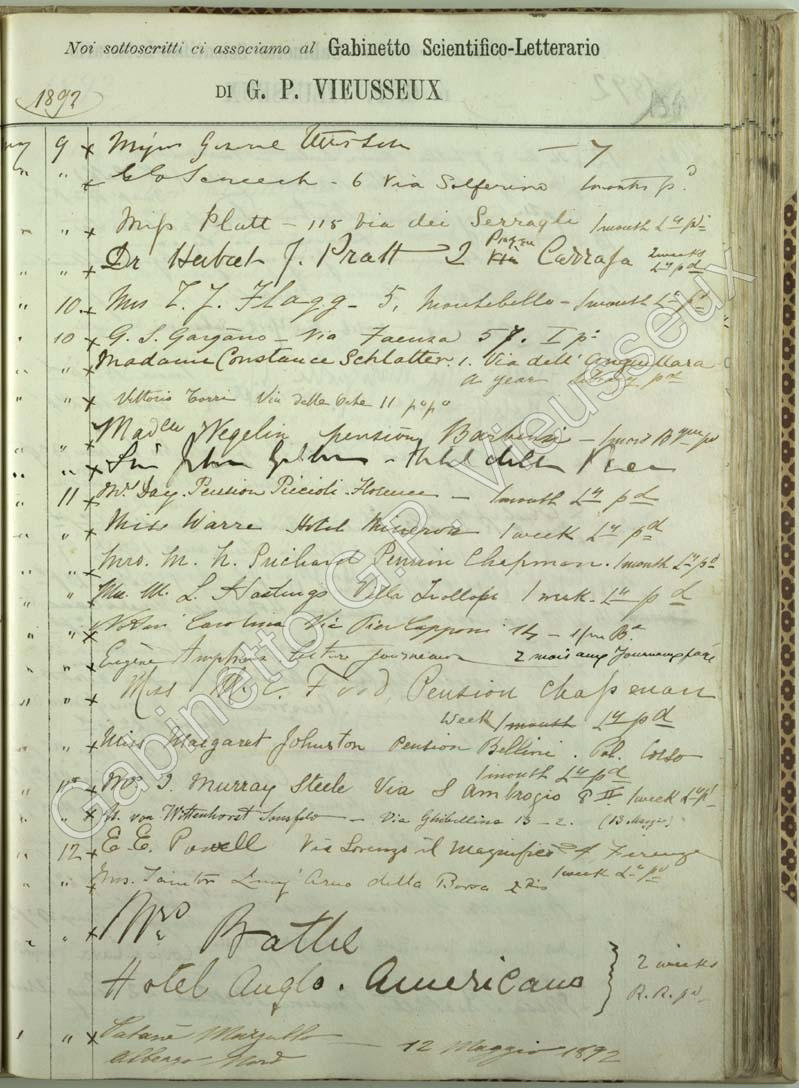 Noi sottoscritti ci associamo al Gabinetto Scientifico-Letterario
DI G. P. VIEUSSEUX
1892
9 x Major General — 7
" x 6 Via Solferino 1 month pd
" x Miss Platt — 115 Via dei Serragli 1 month Ly pd
" x Dr Herbert J. Pratt 2 Piazza Carrafa 2 weeks Ly pd
10 x Mrs T. J. Flagg — 5, Montebello — 1 month Ly pd
10 x G. S. Gargano — Via Faenza 57. I po
" x Madame Constance Schlatter. 1. Via dell' Anguillara
a year Library pd
" x Vittorio Torri Via delle Oche 11 po po
" x Madlle Wegelin pension Barbensi — 1 mois pd
" x Sir John — Hotel della
11 x Mr Day Pension Piccioli Florence — 1 month Ly pd
" x Miss Warre Hotel Minerva 1 week Ly pd
" x Mrs. M. N. Prichard Pension Chapman. 1 month Ly pd
" x M. L Hastings Villa Trollope 1 week — Ly pd
" x Carolina Via Pier Capponi 14 —
" x Eugène lecture journaux 2 mois aux Journaux payé
" x Miss M. C. Food, Pension Chapman
week 1 month Ly pd
" x Miss Margaret Johnston Pension Bellini. Pal. Corso
1 month Ly pd
11 x Mr J. Murray Steele Via S Ambrogio 8 II. 1 week Ly pd
" x H. von Wittenhorst Sonsfeld — Via Ghibellina 13 — 2. (13 Maggio)
12 x E. E. Powell Via Lorenzo il Magnifico Firenze
" x Mrs. Tainton Lung' Arno della Borsa 2 bis 1 week Ly pd
" x Mrs. Bathe
Hotel Anglo. Americano } 2 weeks
R. R. pd
" x
Albergo Nord — 12 Maggio 1892
Gabinetto G.P. Vieusseux